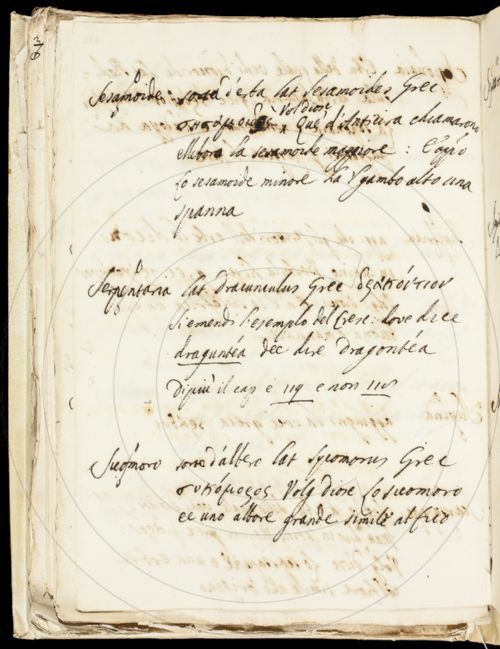 Sesamoide sorta d'erba lat sesamoides Grec
σησαμοειδές Volg diosc Que' d'Anticira chiamarono
ellebora la sesamoide maggiore :
Lo sesamoide minore ha l gambo alto una
spanna
Serpentaria lat Dracunculus Grec δρακόντιον
Si emendi l'esemplo del Cresc: dove dice
draguntéa dee dire Dragontéa
Di più il cap è 119 e non 118
Sicomoro sorta d'albero lat sycomorus Grec
συκόμορος Volg diosc Lo sicomoro
ee uno albore grande simile al fico